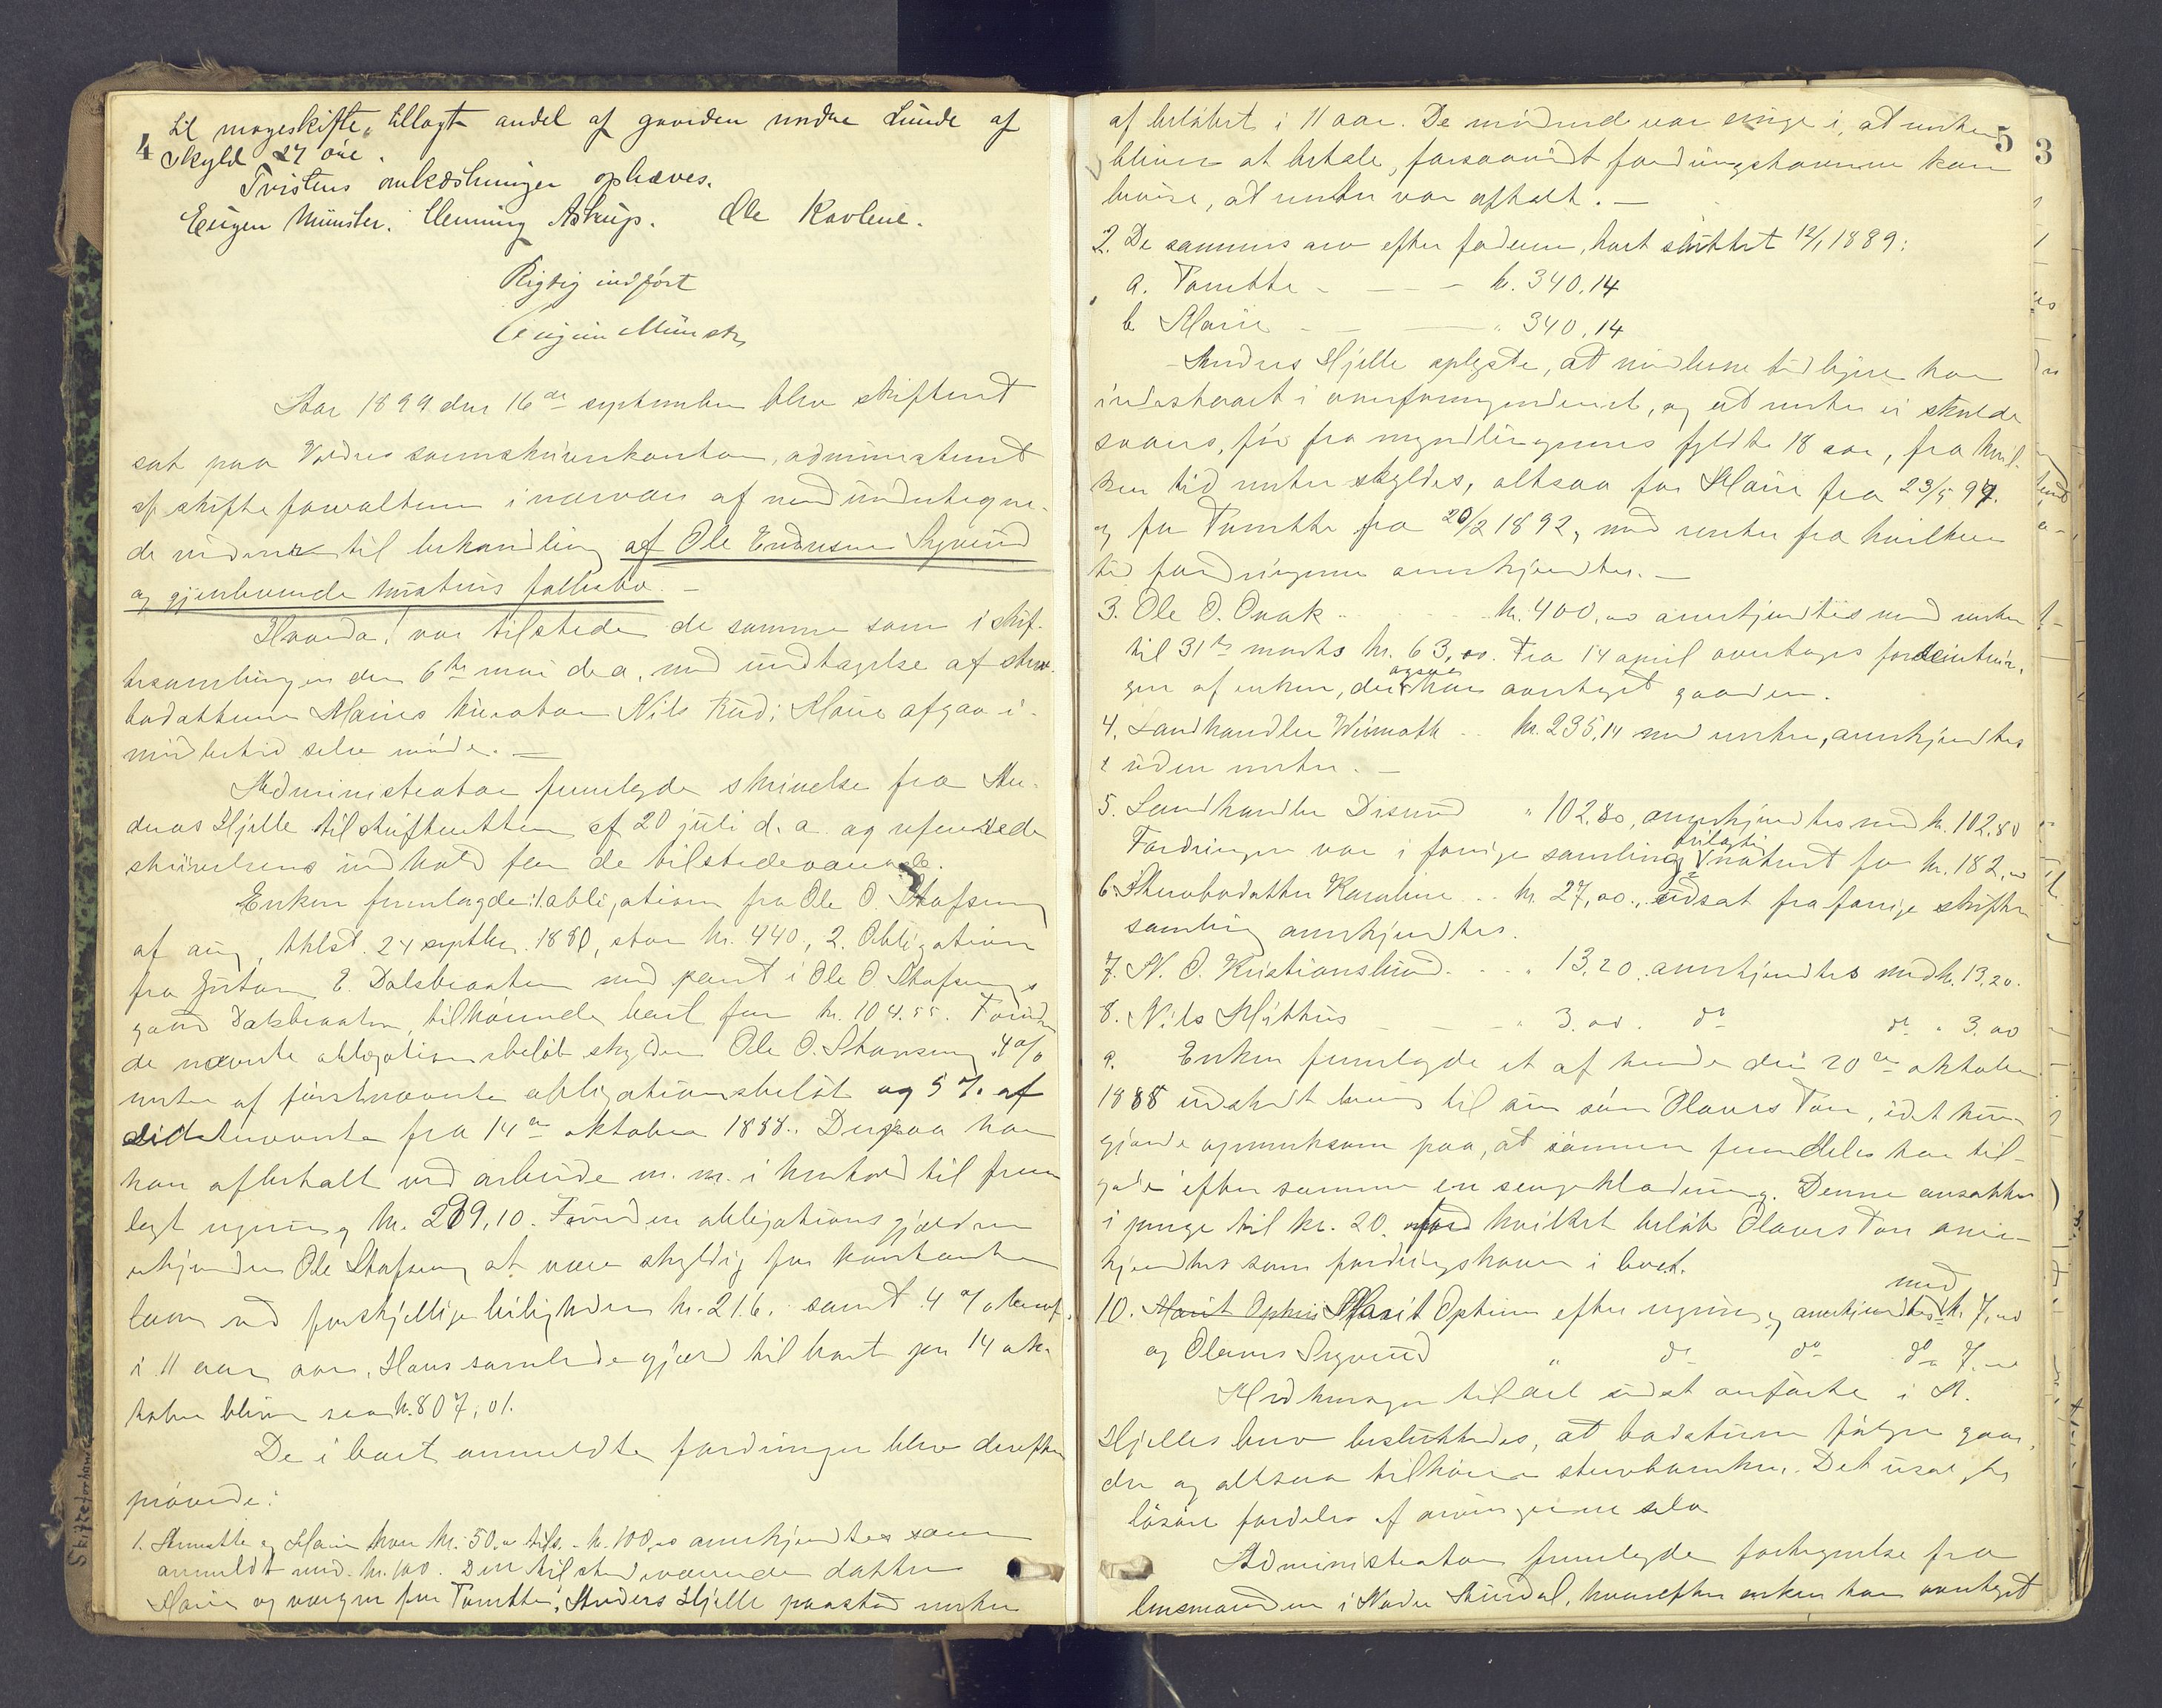 4
til mageskifte, tillagte andel af gaarden nordre Lunde af
skyld 27 øre.
Tvistens omkostninger ophæves.
Eugen Münster. Henning Askup. Ole Kavlene.
Rigtig indført
Eugen Münster
Aar 1899 den 16de september blev skifteret
sat paa Valdres sorenskriverkontor, administreret
af skifteforvalteren i nærvær af medundertegne-
de vidner til behandling af Ole Endresen Sygvind
og gjenlevende hustrus fællesbo. –
Hvorda! var tilstede de samme som i skif-
tesamlingen den 6te mai d.a. med undtagelse af stervbo-
datteren Maries kurator Nils Rud; Marie afgav i-
midlertid selv møde. –
Administrator fremlagde skrivelse fra An-
dreas Hjelle til skifteretten af 20 juli d.a. og refererede
skrivelsens indhold for de tilstedeværende.
Enken fremlagde: 1. obligation fra Ole O. Stafseng
af aug, thlst. 24 septbr. 1880, stor kr. 440, 2. Obligation
fra Gustav E. Dalsbraaten med pant i Ole O. Stafsengs
gaard Dalsbraaten, tilhørende boet for kr. 104.55. Foruden
de nævnte obligationsbeløb skylder Ole O. Stavseng 4 %
renter af førstnævnte obligationsbeløb og 5 % af
sidstnævnte fra 14de oktober 1888. Derpaa har
han afbetalt ved arbeide m. m. i henhold til frem-
lagt regning kr. 289,10. Foruden obligationsgjælden
erkjender Ole Stafseng at være skyldig for kontante
laan ved forskjellige leiligheder kr. 216. samt 4 % heraf
i 11 aar. Hans samlede gjæld til boet pr 14 ok-
tober bliver saa kr. 807,01.
De i boet anmeldte fordringer blev derefter
prøvede:
1. Annette og Marie hver kr. 50.00 tils. kr. 100,00 anerkjendtes som
anmeldt med kr. 100. Den tilstedeværende datter
Marie og værgen for Tomette, Anders Hjelle paastod renter
5
3
af beløbet i 11 aar. De mødende var enige i, at renten
bliver at betale, forsaavidt fordringshaverne kan
bevise, at renter var aftalt. –
2. De sammes arv efter faderen, hvort sluttet 12/1 1889:
a. Tomette – – – kr. 340,14
b Marie – – „ 340,14
Anders Hjelle oplyste, at midlerne tidligere har
indestaaet i overformynderiet, og at renter ei skulde
svares, før fra myndlingernes fyldte 18 aar, fra hvil-
ken tid renter skyldes, altsaa for Marie fra 23/5 97.
og for Tomette fra 20/2 1892, med renter fra hvilken
tid fordringerne anerkjendtes. –
3. Ole O. Onak .. kr. 400,00 anerkjendtes med renter
til 31te marts kr. 63,00. Fra 14 april overtages forrentnin-
gen af enken, der ogsaa har overtaget gaarden.
4. Landhandler Weimoth .. kr. 235,14 med renter, anerkjendtes
uden renter. –
5. Landhandler Disrud „ 102,80, anerkjendtes med kr. 102,80
Fordringen var i forrige samling feilagtig noteret for kr. 182,00
6. Stervbodatter Karoline .. kr. 27,00., udsat fra forrige skifte-
samling anerkjendtes.
7. N. O. Kristianslund. . . „ 13,20 anerkjendtes med kr. 13,20.
8. Nils Myhthus – – „ 3.00. do do „ 3.00
9. Enken fremlagde et af hende den 20de oktober
1888 udstedt bevis til sin søn Olaves Ton, idet hun
gjorde opmerksom paa, at sønnen fremdeles har til-
gode efter samme en sengeklædning. Denne ansættes
i penge til kr. 20. for hvilket beløb Olaves Ton aner-
kjendtes som fordringshaver i boet.
10. Marit Opheim Marit Opheim efter regning anerkjendtes med kr. 7,00
og Olaves Sygvind „ do do do „ 7.00
Med hensyn til det sidst anførte i A.
Hjelles brev besluttedes, at badstuen følger gaar-
den og altsaa tilhører stervboenken. Det usolgte
løsøre fordeles af arvingerne selv
Administrator fremlagde fortegnelse fra
lensmanden i Nordre Aurdal, hvorefter enken har overtaget
Skifteforhandl